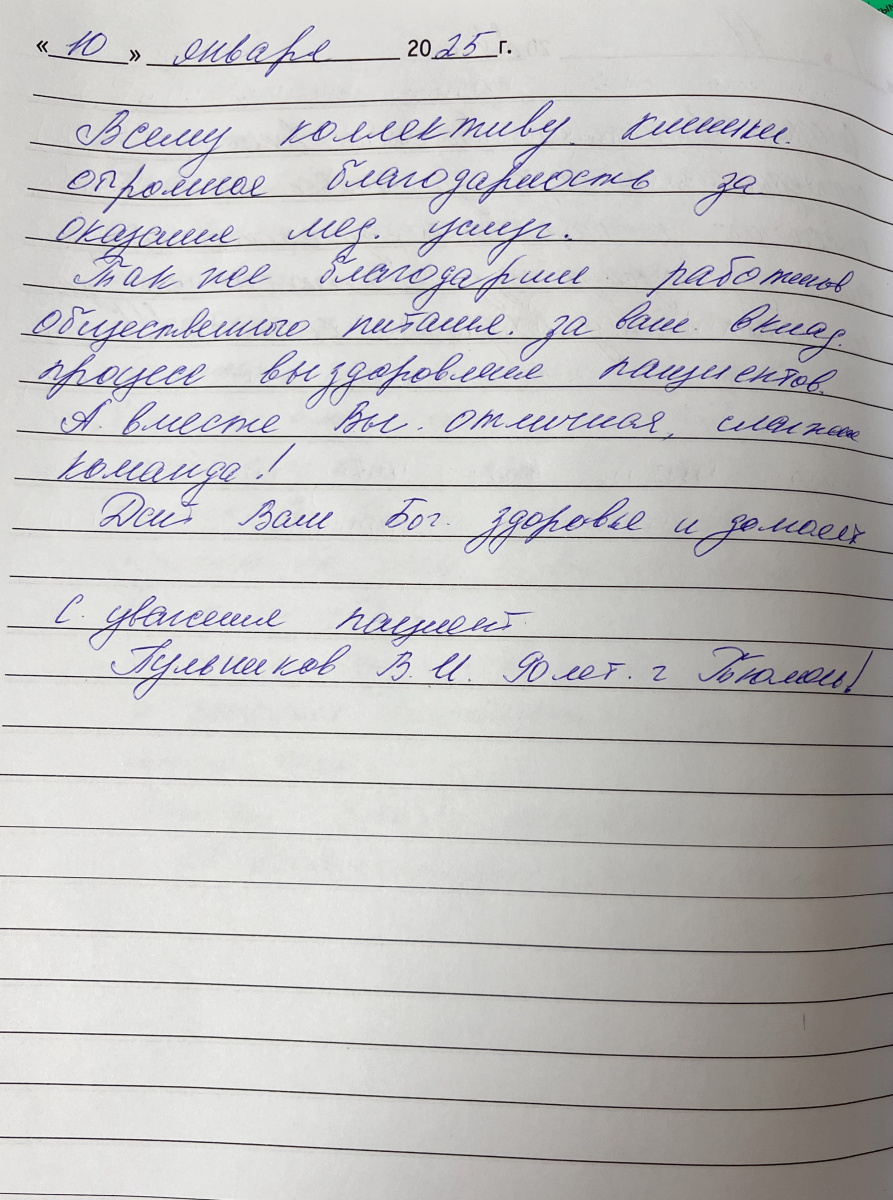 « 10 » января 2025 г.
Всему коллективу клиники.
огромное благодарность за
оказания мед. услуг.
Так же благодарим работников
общественного питания. за ваш. вклад.
процесс выздоровление пациентов.
А вместе Вы. отличная, слаженная
команда!
Дай Вам Бог. здоровье и
С. уважения пациент.
Пульников В. И. 90 лет. г Тюмень!